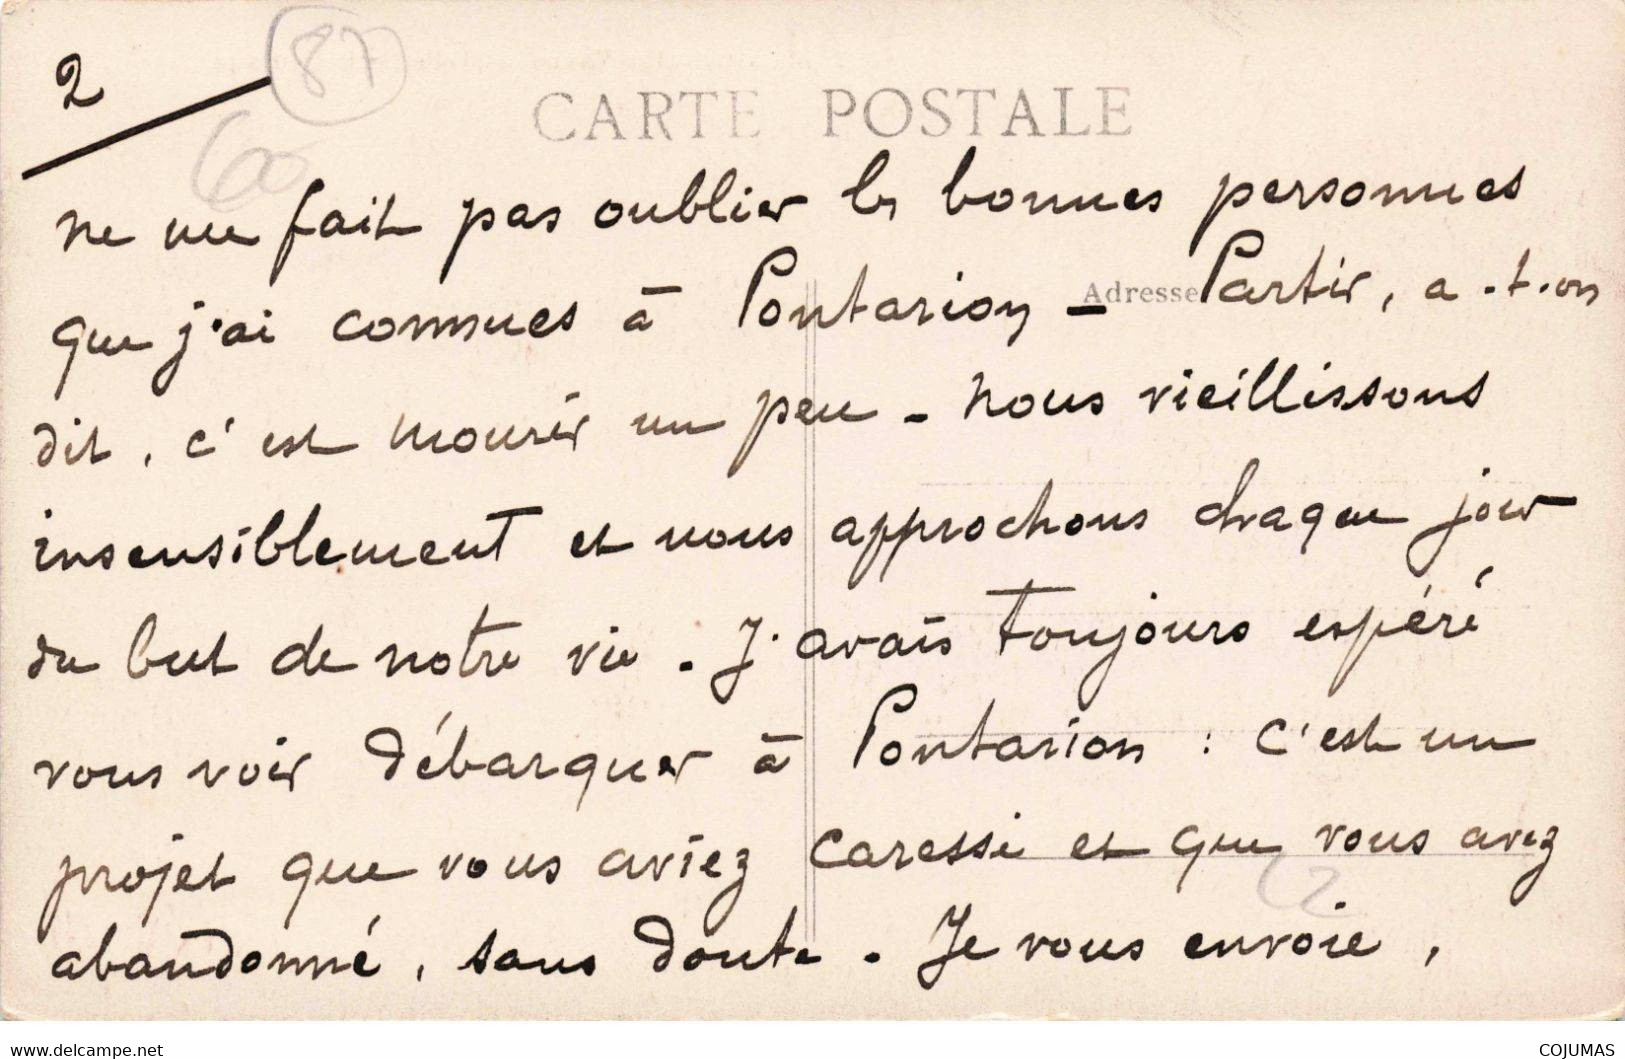 2
87
60
CARTE POSTALE
ne me fait pas oublier les bonnes personnes
que j'ai connues à Pontarion - Adresse Partir, a-t-on
dit, c'est mourir un peu - nous vieillissons
insensiblement et nous approchons chaque jour
du but de notre vie. J'avais toujours espéré
vous voir débarquer à Pontarion : c'est un
projet que vous aviez caressé et que vous avez
abandonné, sans doute. Je vous envoie,
www.delcampe.net
COJUMAS